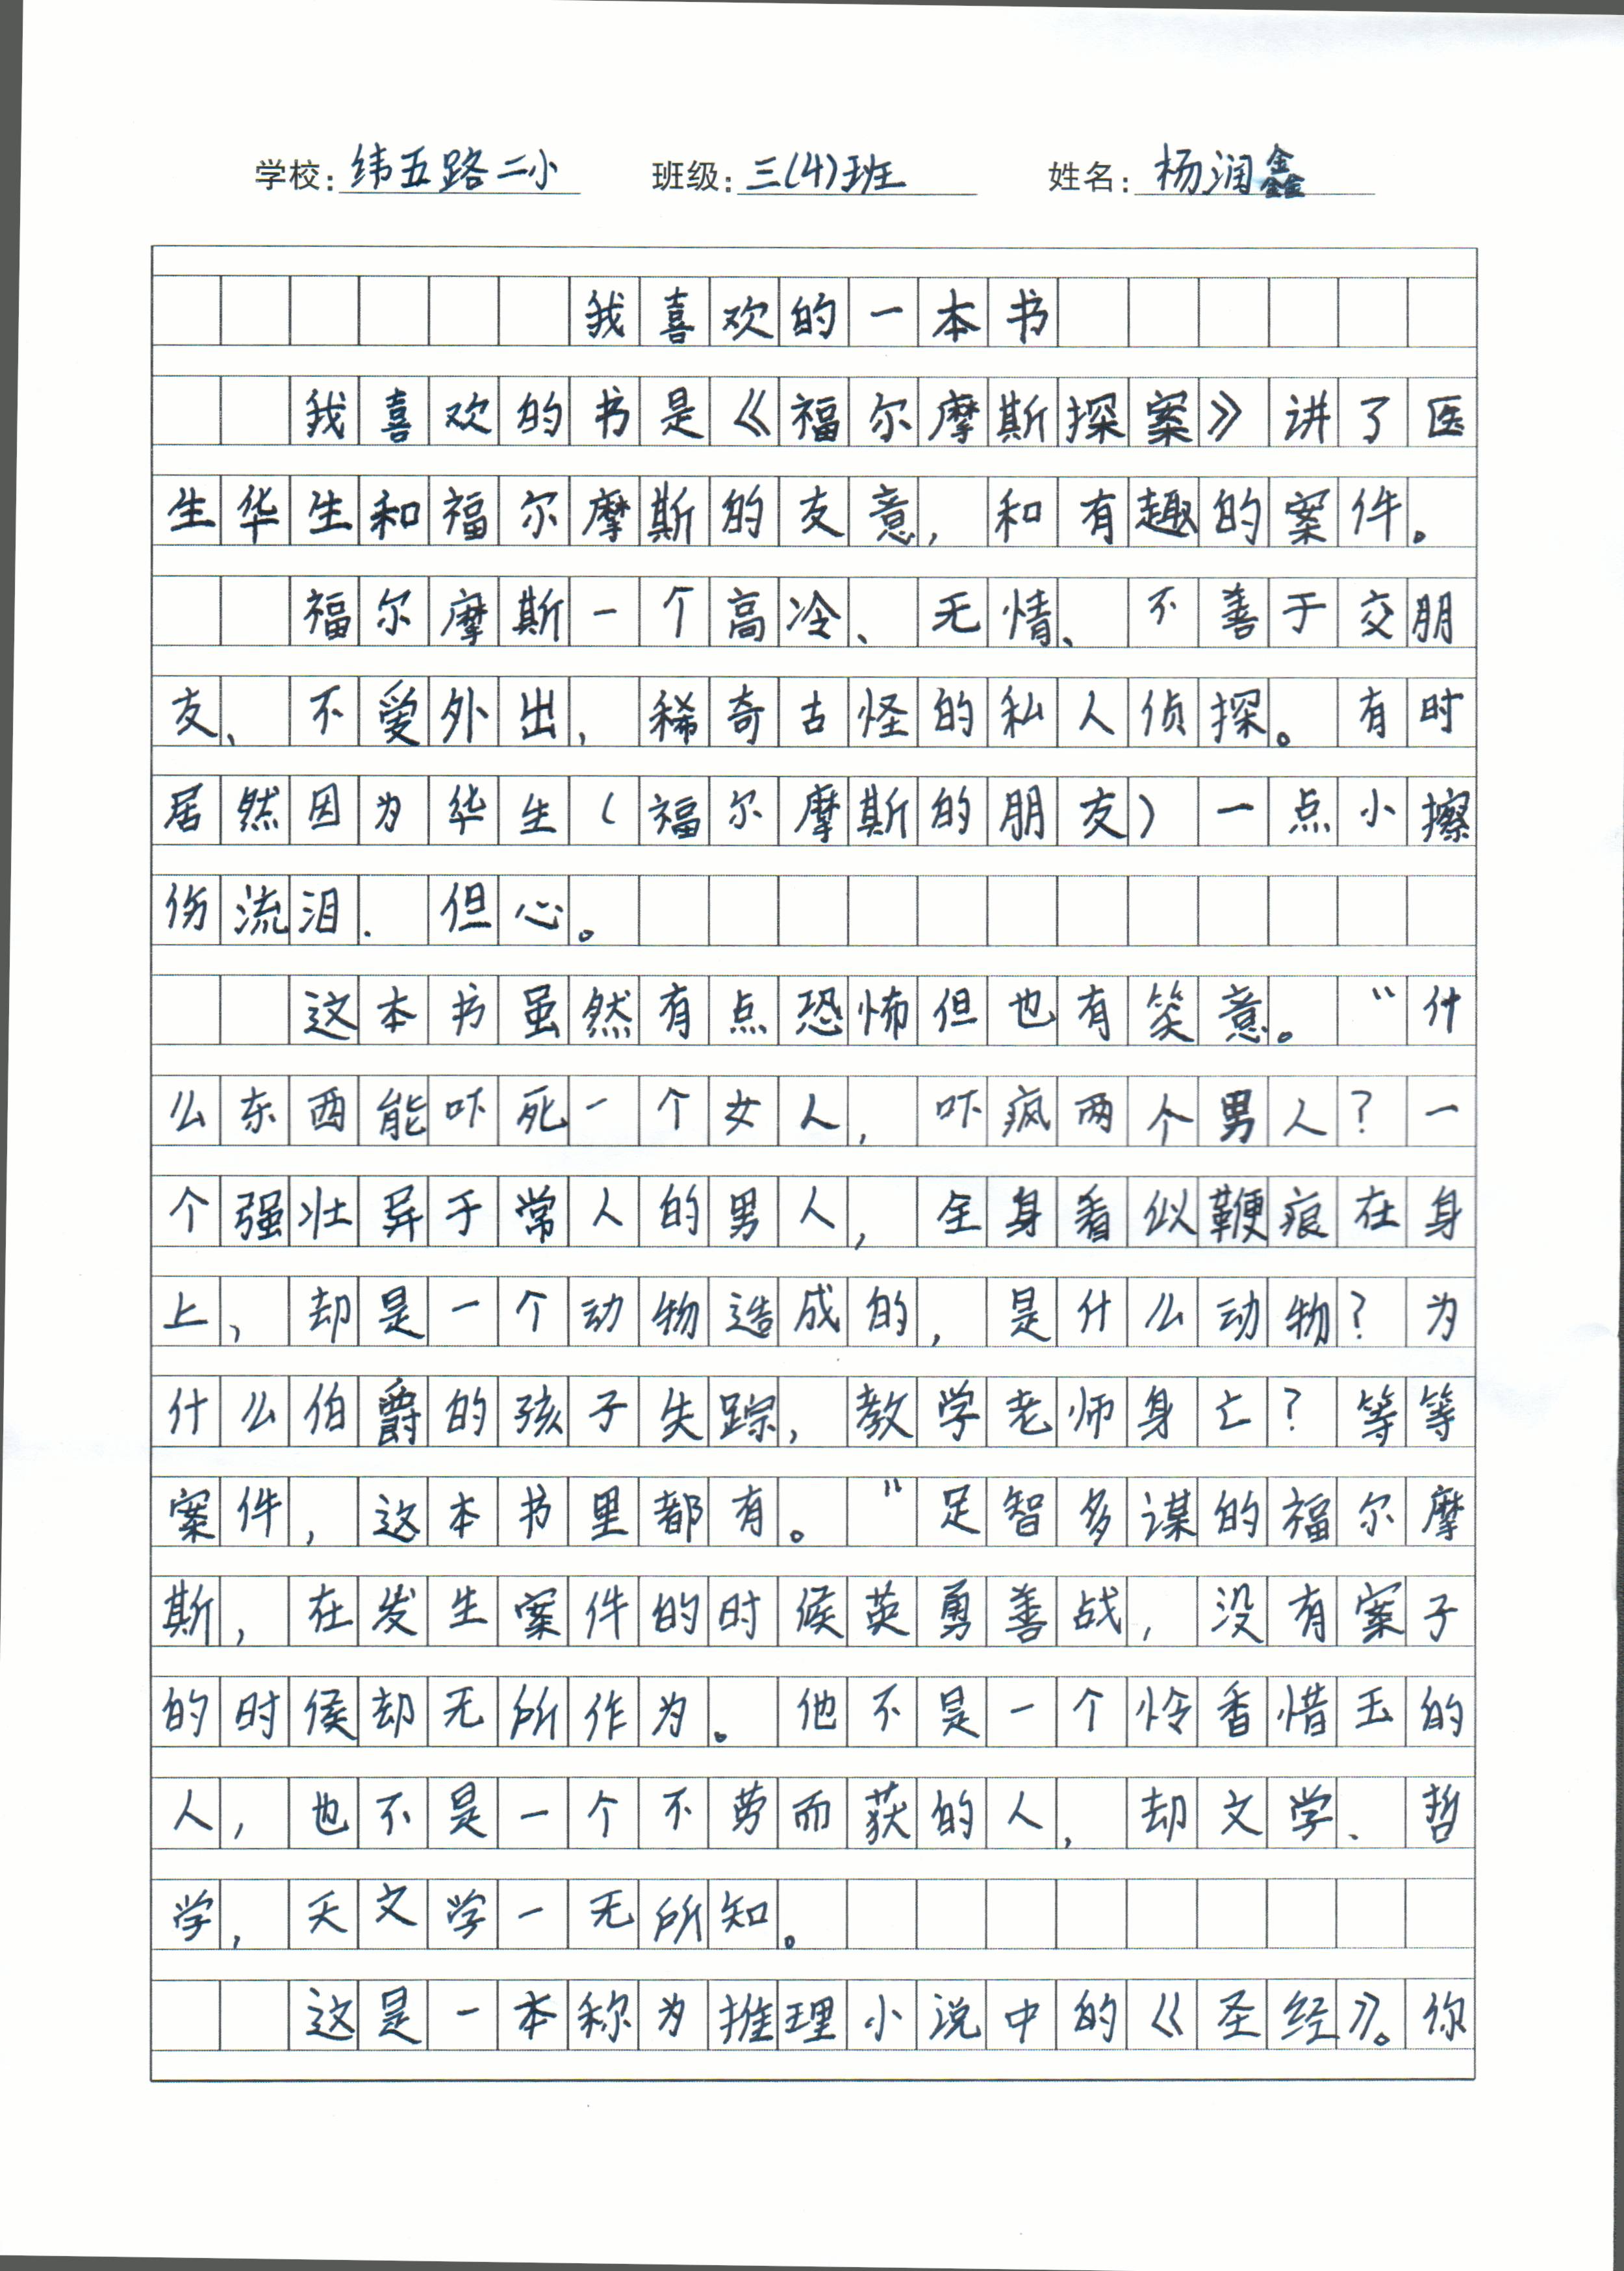 学校：纬五路二小 班级：三(4)班 姓名：杨润鑫
我喜欢的一本书
我喜欢的书是《福尔摩斯探案》讲了医
生华生和福尔摩斯的友意，和有趣的案件。
福尔摩斯一个高冷、无情、不善于交朋
友、不爱外出，稀奇古怪的私人侦探。有时
居然因为华生（福尔摩斯的朋友）一点小擦
伤流泪．但心。
这本书虽然有点恐怖但也有笑意。“什
么东西能吓死一个女人，吓疯两个男人？一
个强壮异于常人的男人，全身看似鞭痕在身
上，却是一个动物造成的，是什么动物？为
什么伯爵的孩子失踪，教学老师身亡？等等
案件，这本书里都有。”足智多谋的福尔摩
斯，在发生案件的时候英勇善战，没有案子
的时侯却无所作为。他不是一个怜香惜玉的
人，也不是一个不劳而获的人，却文学、哲
学，天文学一无所知。
这是一本称为推理小说中的《圣经》。你